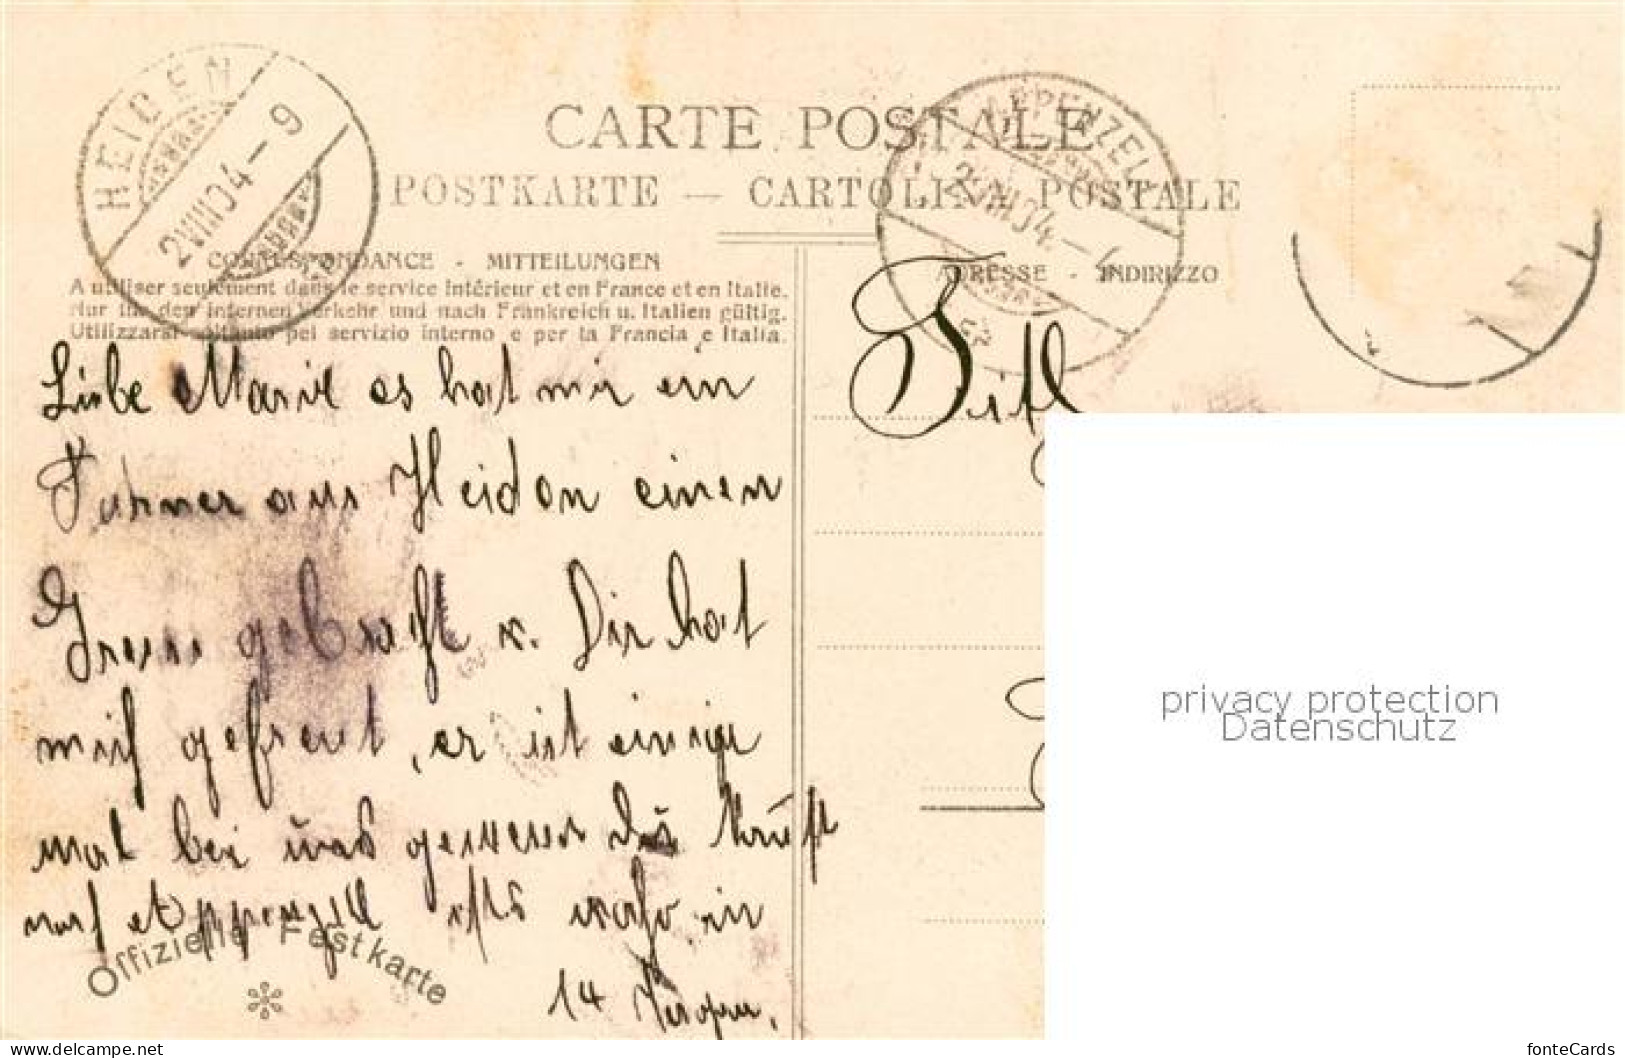 HEIDEN
2 VIII 04 – 9
CARTE POSTALE
APPENZELL
2 VIII 04 – 4
POSTKARTE — CARTOLINA POSTALE
CORRESPONDANCE - MITTEILUNGEN
ADRESSE - INDIRIZZO
A utiliser seulement dans le service intérieur et en France et en Italie.
Nur für den internen Verkehr und nach Frankreich u. Italien gültig.
Utilizzarsi soltanto pel servizio interno e per la Francia e Italia.
Liebe Marie es hat mir ein
Turner aus Heiden einen
Gruss gebracht v. Dir hat
mich gefreut, er ist einige
mal bei uns gewesen Du
nach Appenzell in
14 Tagen.
Titl
Offizielle Festkarte
privacy protection
Datenschutz
www.delcampe.net
fonteCards